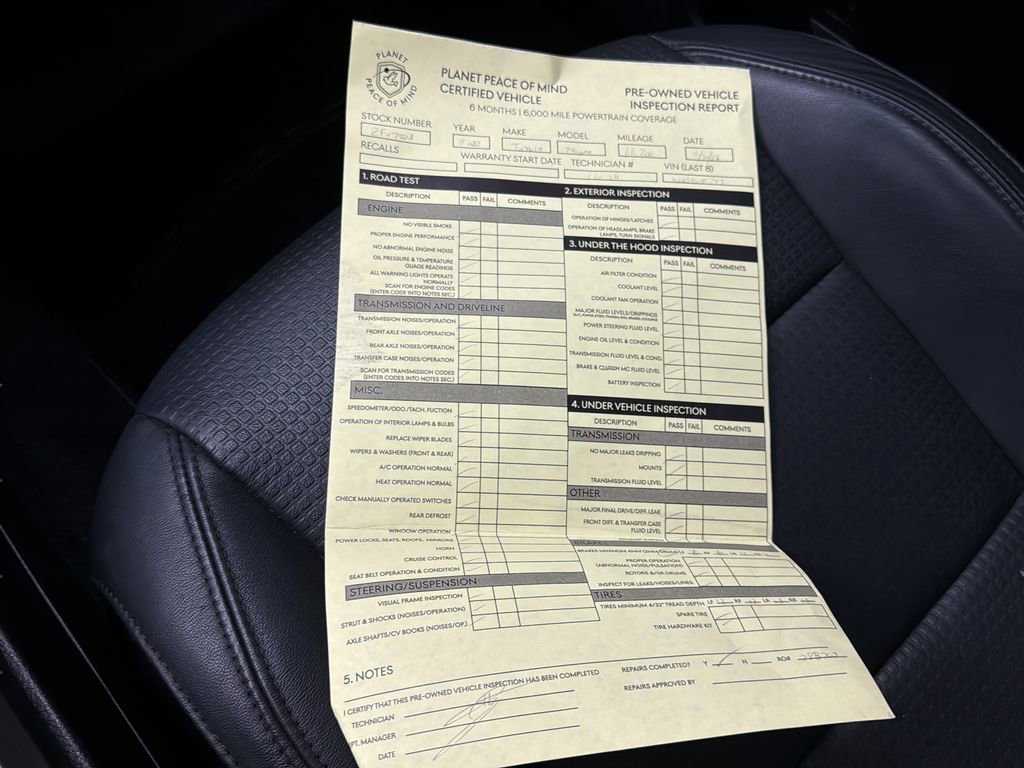 PLANET
PEACE OF MIND
PLANET PEACE OF MIND
CERTIFIED VEHICLE
PRE-OWNED VEHICLE
INSPECTION REPORT
6 MONTHS | 6,000 MILE POWERTRAIN COVERAGE
STOCK NUMBER YEAR MAKE MODEL MILEAGE DATE
RECALLS WARRANTY START DATE TECHNICIAN # VIN (LAST 8)
1. ROAD TEST
DESCRIPTION PASS FAIL COMMENTS
ENGINE
NO VISIBLE SMOKE
PROPER ENGINE PERFORMANCE
NO ABNORMAL ENGINE NOISE
OIL PRESSURE & TEMPERATURE
GUAGE READINGS
ALL WARNING LIGHTS OPERATE
NORMALLY
SCAN FOR ENGINE CODES
(ENTER CODE INTO NOTES SEC.)
TRANSMISSION AND DRIVELINE
TRANSMISSION NOISES/OPERATION
FRONT AXLE NOISES/OPERATION
REAR AXLE NOISES/OPERATION
TRANSFER CASE NOISES/OPERATION
SCAN FOR TRANSMISSION CODES
(ENTER CODES INTO NOTES SEC.)
MISC.
SPEEDOMETER/ODO./TACH. FUCTION
OPERATION OF INTERIOR LAMPS & BULBS
REPLACE WIPER BLADES
WIPERS & WASHERS (FRONT & REAR)
A/C OPERATION NORMAL
HEAT OPERATION NORMAL
CHECK MANUALLY OPERATED SWITCHES
REAR DEFROST
WINDOW OPERATION
POWER LOCKS, SEATS, ROOFS, MIRRORS
HORN
CRUISE CONTROL
SEAT BELT OPERATION & CONDITION
STEERING/SUSPENSION
VISUAL FRAME INSPECTION
STRUT & SHOCKS (NOISES/OPERATION)
AXLE SHAFTS/CV BOOKS (NOISES/OP.)
2. EXTERIOR INSPECTION
DESCRIPTION PASS FAIL COMMENTS
OPERATION OF HINGES/LATCHES
OPERATION OF HEADLAMPS, BRAKE
LAMPS, TURN SIGNALS
3. UNDER THE HOOD INSPECTION
DESCRIPTION PASS FAIL COMMENTS
AIR FILTER CONDITION
COOLANT LEVEL
COOLANT FAN OPERATION
MAJOR FLUID LEVELS/DRIPPINGS
POWER STEERING FLUID LEVEL
ENGINE OIL LEVEL & CONDITION
TRANSMISSION FLUID LEVEL & COND.
BRAKE & CLUTCH MC FLUID LEVEL
BATTERY INSPECTION
4. UNDER VEHICLE INSPECTION
DESCRIPTION PASS FAIL COMMENTS
TRANSMISSION
NO MAJOR LEAKS DRIPPING
MOUNTS
TRANSMISSION FLUID LEVEL
OTHER
MAJOR FINAL DRIVE/DIFF. LEAK
FRONT DIFF. & TRANSFER CASE
FLUID LEVEL
BRAKES
BRAKES MINIMUM
PROPER OPERATION
(ABNORMAL NOISE/PULSATION)
ROTORS &/OR DRUMS
INSPECT FOR LEAKS/HOSES/LINES
TIRES
TIRES MINIMUM 4/32" TREAD DEPTH LF RF LR RR
SPARE TIRE
TIRE HARDWARE KIT
5. NOTES
I CERTIFY THAT THIS PRE-OWNED VEHICLE INSPECTION HAS BEEN COMPLETED
TECHNICIAN
PT. MANAGER
DATE
REPAIRS COMPLETED? Y N RO#
REPAIRS APPROVED BY